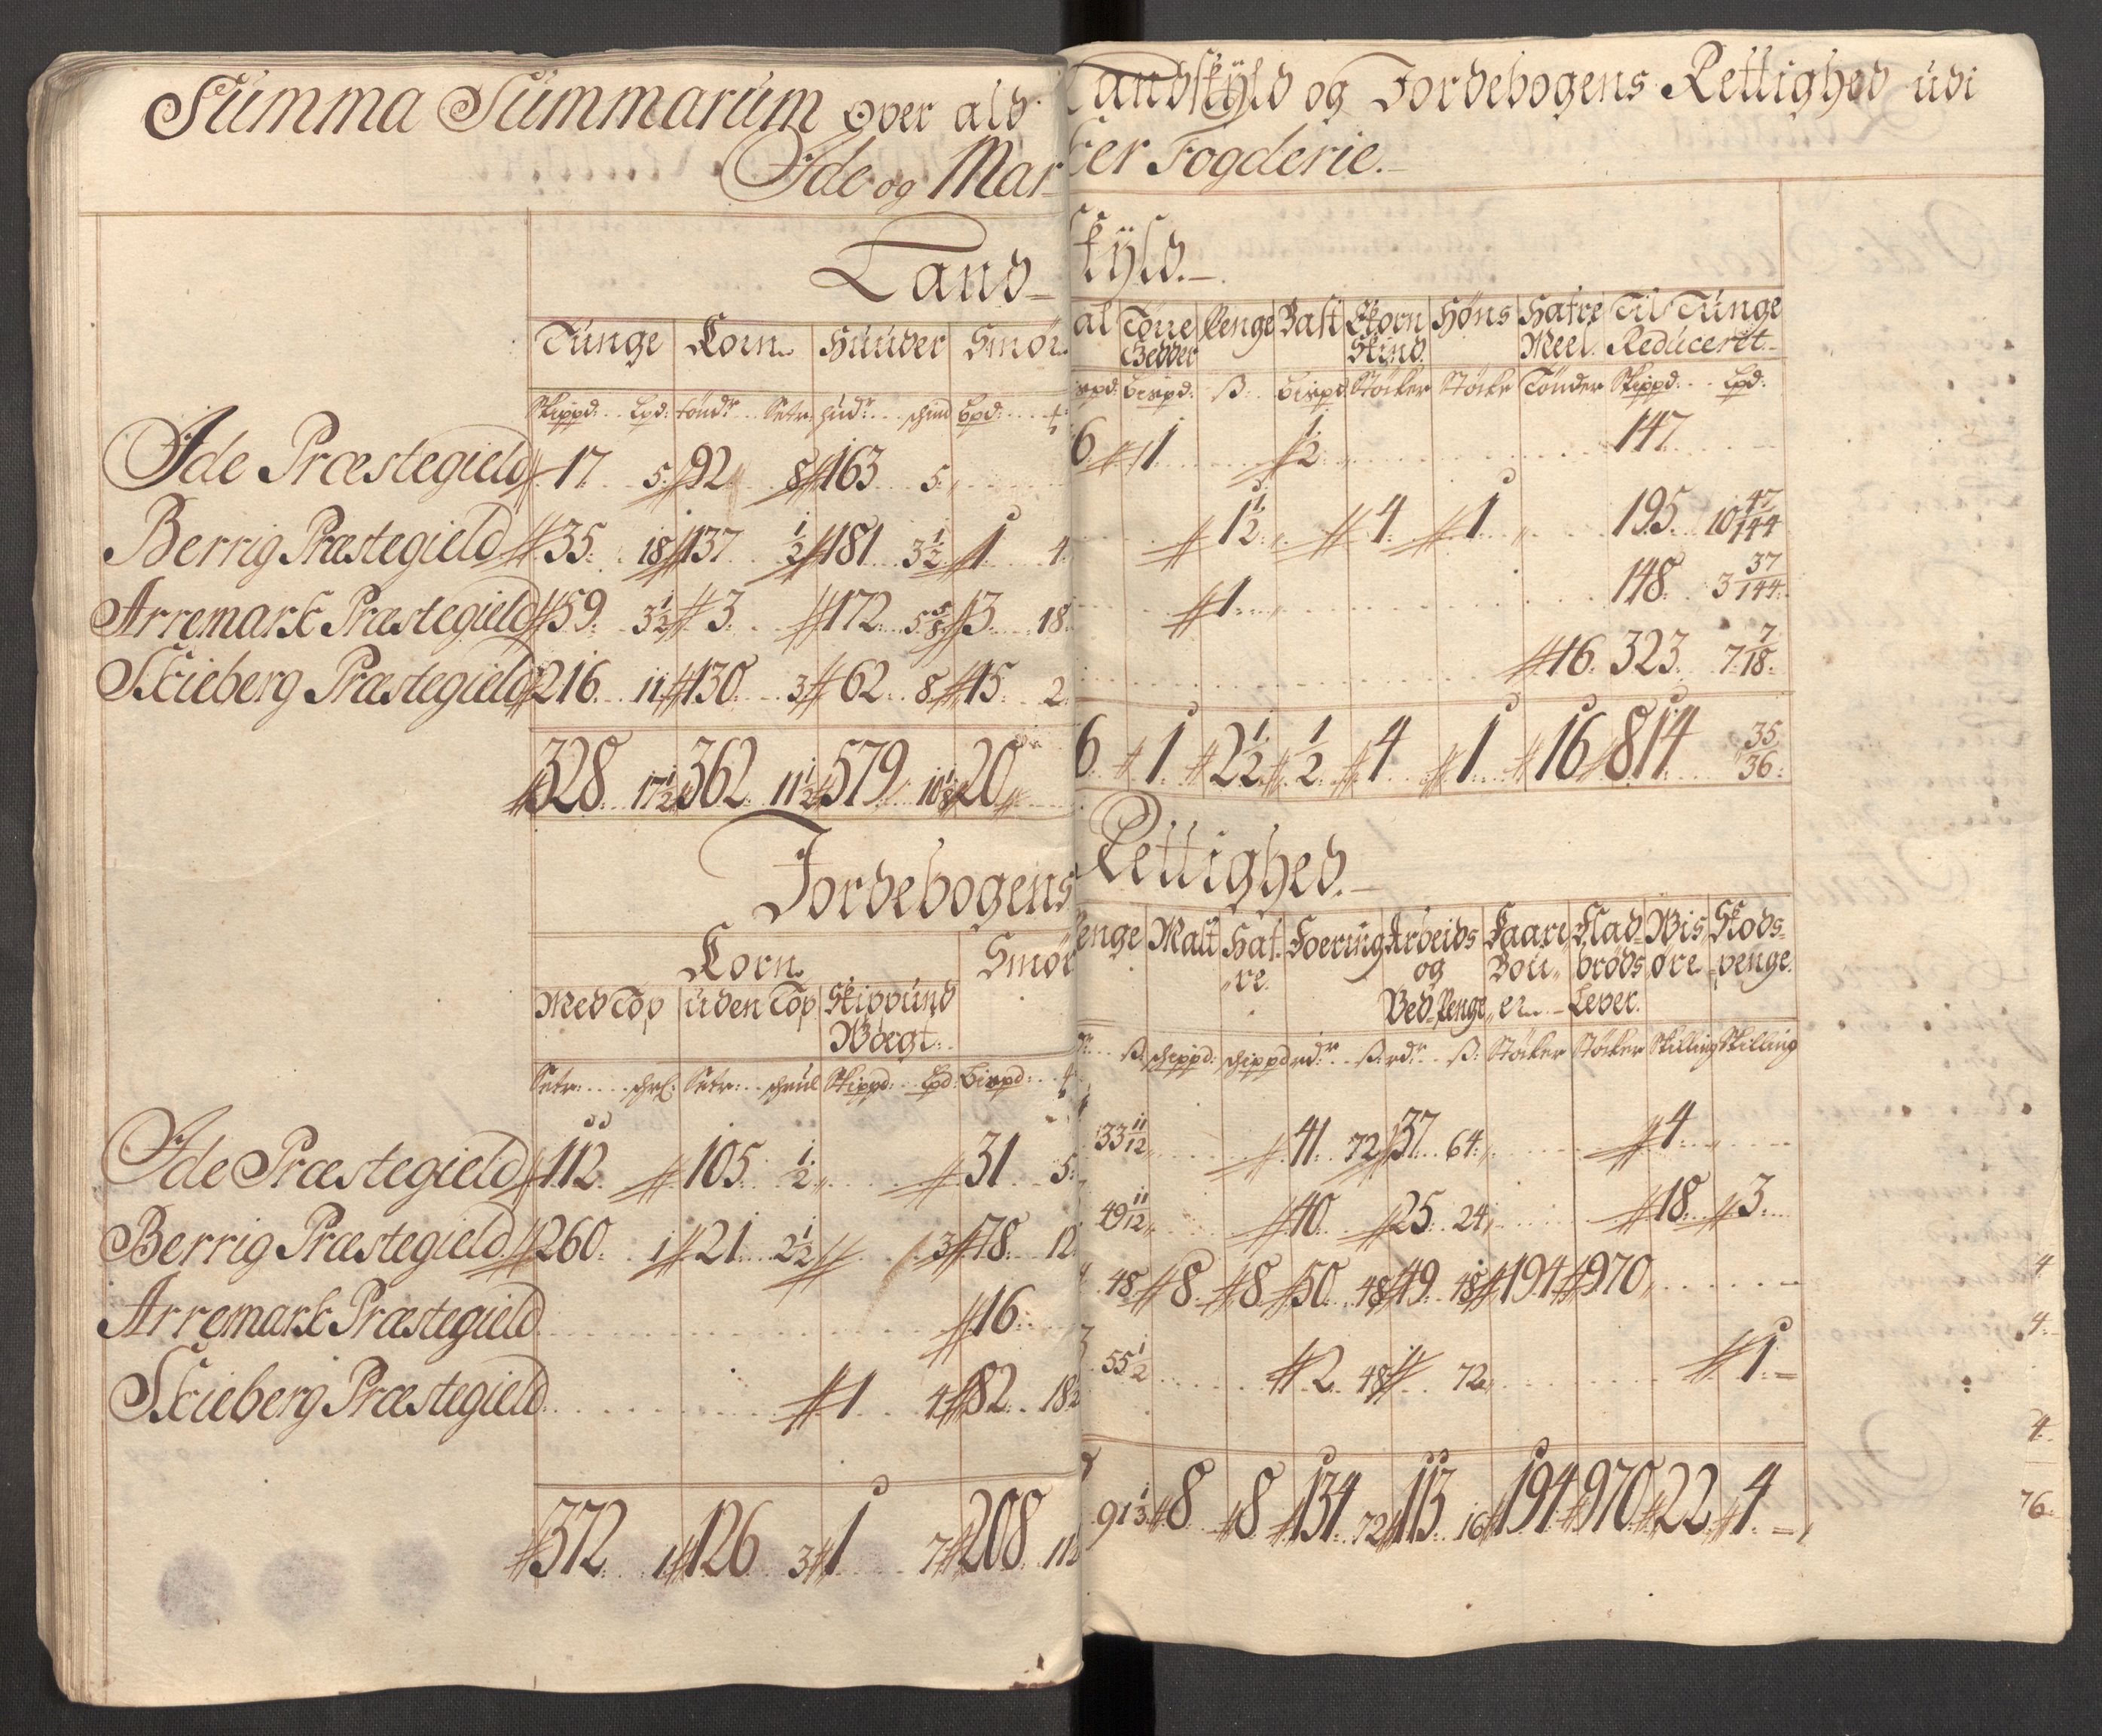 Summa Summarum over ald Landskÿld og Jordebogens Rettighed udi
Ide og Marker Fogderie.
Land-skÿld.
Tunge Korn Huuder Smør al Tørre Gedder Penge Bast Ekorn Skind Høns Hafre Meel Til Tunge Reducerit
Skippd: Lpd: tøndr Setr: hudr skind Lpd: Lispd: ß: Lispd Støcker Støckr Tønder Skippd: Lpd:
Ide Præstegield 17 5 92 8 163 5 6 1 1/2 147
Berrig Præstegield 35 18 137 1/2 181 3 1/2 1 4 1 1/2 4 1 195 10 47/144
Arremark Præstegield 59 3 1/2 3 172 5 5/8 3 18 1 148 3 37/144
Skieberg Præstegield 216 11 130 3 62 8 15 2 16 323 7 7/18
328 17 1/2 362 11 1/2 579 10 1/8 20 6 1 2 1/2 1/2 4 1 16 814 35/36
Jordebogens Rettighed.
Korn Smør enge Malt Haf re. Foering Arbeids og Ved Penge Faare Bou er Flad brøds Lever Wis øre Skods penge
Med Top uden Top Skippund Wægt
Setr: Setr: Skippd: Lpd: Lispd: ß: skippd: skippd rdr ß: rdr ß: Støcker Støcker Skilling Skilling
Ide Præstegield 112 105 1/2 31 5 33 11/12 41 72 37 64 4
Berrig Præstegield 260 1 21 2 1/2 3 78 12 49 11/12 40 25 24 18 3
Arremark Præstegield 16 48 8 8 50 48 49 48 194 970
Skieberg Præstegield 1 4 82 18 1/2 55 1/2 2 48 72 1
372 1 126 3 1 7 208 11 91 1/3 8 8 134 72 113 16 194 970 22 4
4
4
4
76